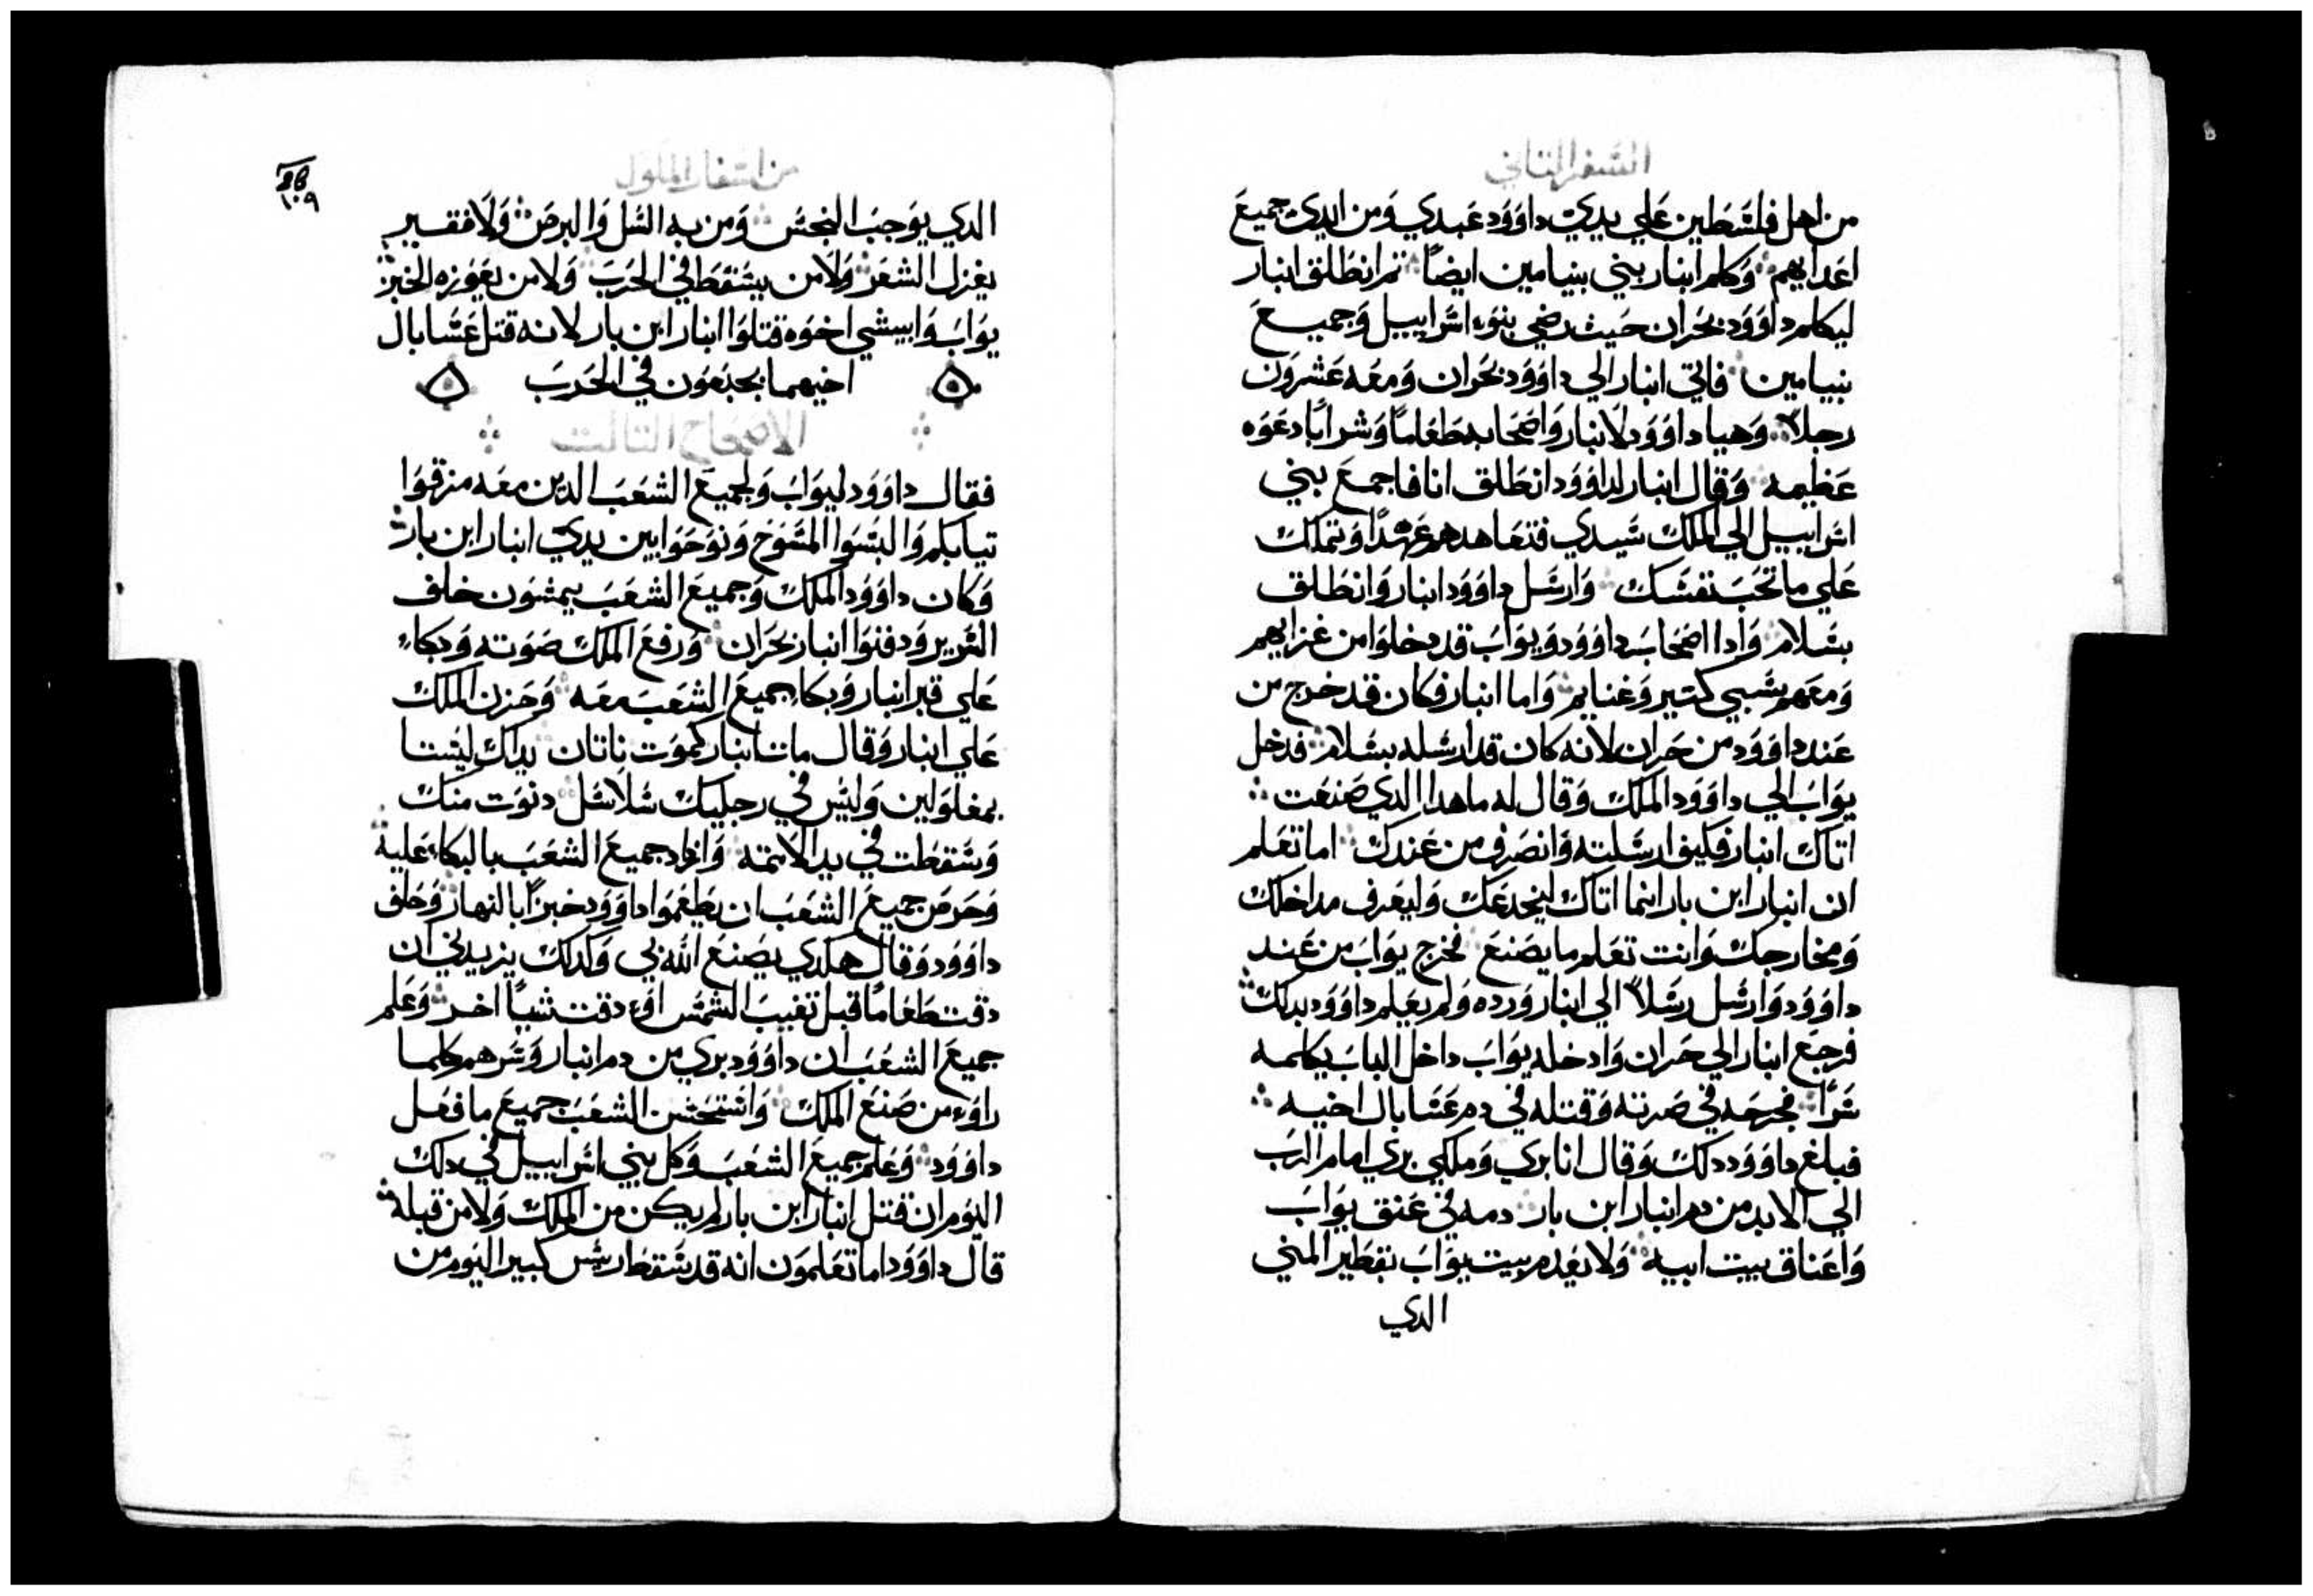 السفر التاني
من اهل فلسطين علي يدي داوود عبدي ومن ايدي جميع
اعدايهم وكلم ابنار بني بنيامين ايضًا تم انطلق ابنار
ليكلم داوود بحران حيث رضي بنوا اسراييل وجميع
بنيامين فاتي ابنار الي داوود بحران ومعه عشرون
رجلاً وهيا داوود لابنار واصحابه طعامًا وشرابًا دعوه
عظيمه وقال ابنار لداوود انطلق انا فاجمع بني
اسراييل الي الملك سيدي فتعاهدهم عهدًا وتملك
علي ما تحب نفسك وارسل داوود ابنار وانطلق
بسلام وادا اصحاب داوود ويواب قد دخلوا من غزايهم
ومعهم سبي كتير وغنايم واما ابنار فكان قد خرج من
عند داوود من حران لانه كان قد ارسله بسلام فدخل
يواب الي داوود الملك وقال له ما هدا الدي صنعت
اتاك ابنار فكيف ارسلته وانصرف من عندك اما تعلم
ان ابنار ابن بار انما اتاك ليخدعك وليعرف مداخلك
ومخارجك وانت تعلم ما يصنع فخرج يواب من عند
داوود وارسل رسلاً الي ابنار ورده ولم يعلم داوود بدلك
فرجع ابنار الي حران وادخله يواب داخل الباب يكلمه
سرًا فجرحه في صرته وقتله في دم عسابال اخيه
فبلغ داوود دلك وقال انا بري وملكي بري امام الرب
الي الابد من دم ابنار ابن بار دمه في عنق يواب
واعناق بيت ابيه ولا يعدم بيت يواب تقطير المني
الدي
من اسفار الملوك
١٠٩
الدي يوجب النجس ومن به السل والبرص ولا فقير
يغزل الشعر ولا من يسقط في الحرب ولا من يعوزه الخبز
يواب وابيشي اخوه قتلوا ابنار ابن بار لانه قتل عسابال
اخيهما بجبعون في الحرب
الاصحاح التالت
فقال داوود ليواب ولجميع الشعب الدين معه مزقوا
تيابكم والبسوا المسوح ونوحوا بين يدي ابنار ابن بار
وكان داوود الملك وجميع الشعب يمشون خلف
السرير ودفنوا ابنار بحران ورفع الملك صوته وبكاء
علي قبر ابنار وبكاء جميع الشعب معه وحزن الملك
علي ابنار وقال مات ابنار كموت ناتان يداك ليستا
بمغلولين وليس في رجليك سلاسل دنوت منك
وسقطت في يد الاتمه وازاد جميع الشعب بالبكاء عليه
وحرص جميع الشعب ان يطعموا داوود خبزًا بالنهار وحلف
داوود وقال هكدي يصنع الله بي وكدلك يزيدني ان
دقت طعامًا قبل تغيب الشمس اوء دقت شيًا اخر وعلم
جميع الشعب ان داوود بري من دم ابنار وسرهم كلما
راوء من صنع الملك واستحسن الشعب جميع ما فعل
داوود وعلم جميع الشعب وكل بني اسراييل في دلك
اليوم ان قتل ابنار ابن بار لم يكن من الملك ولا من قبله
قال داوود اما تعلمون انه قد سقط ريس كبير اليوم من